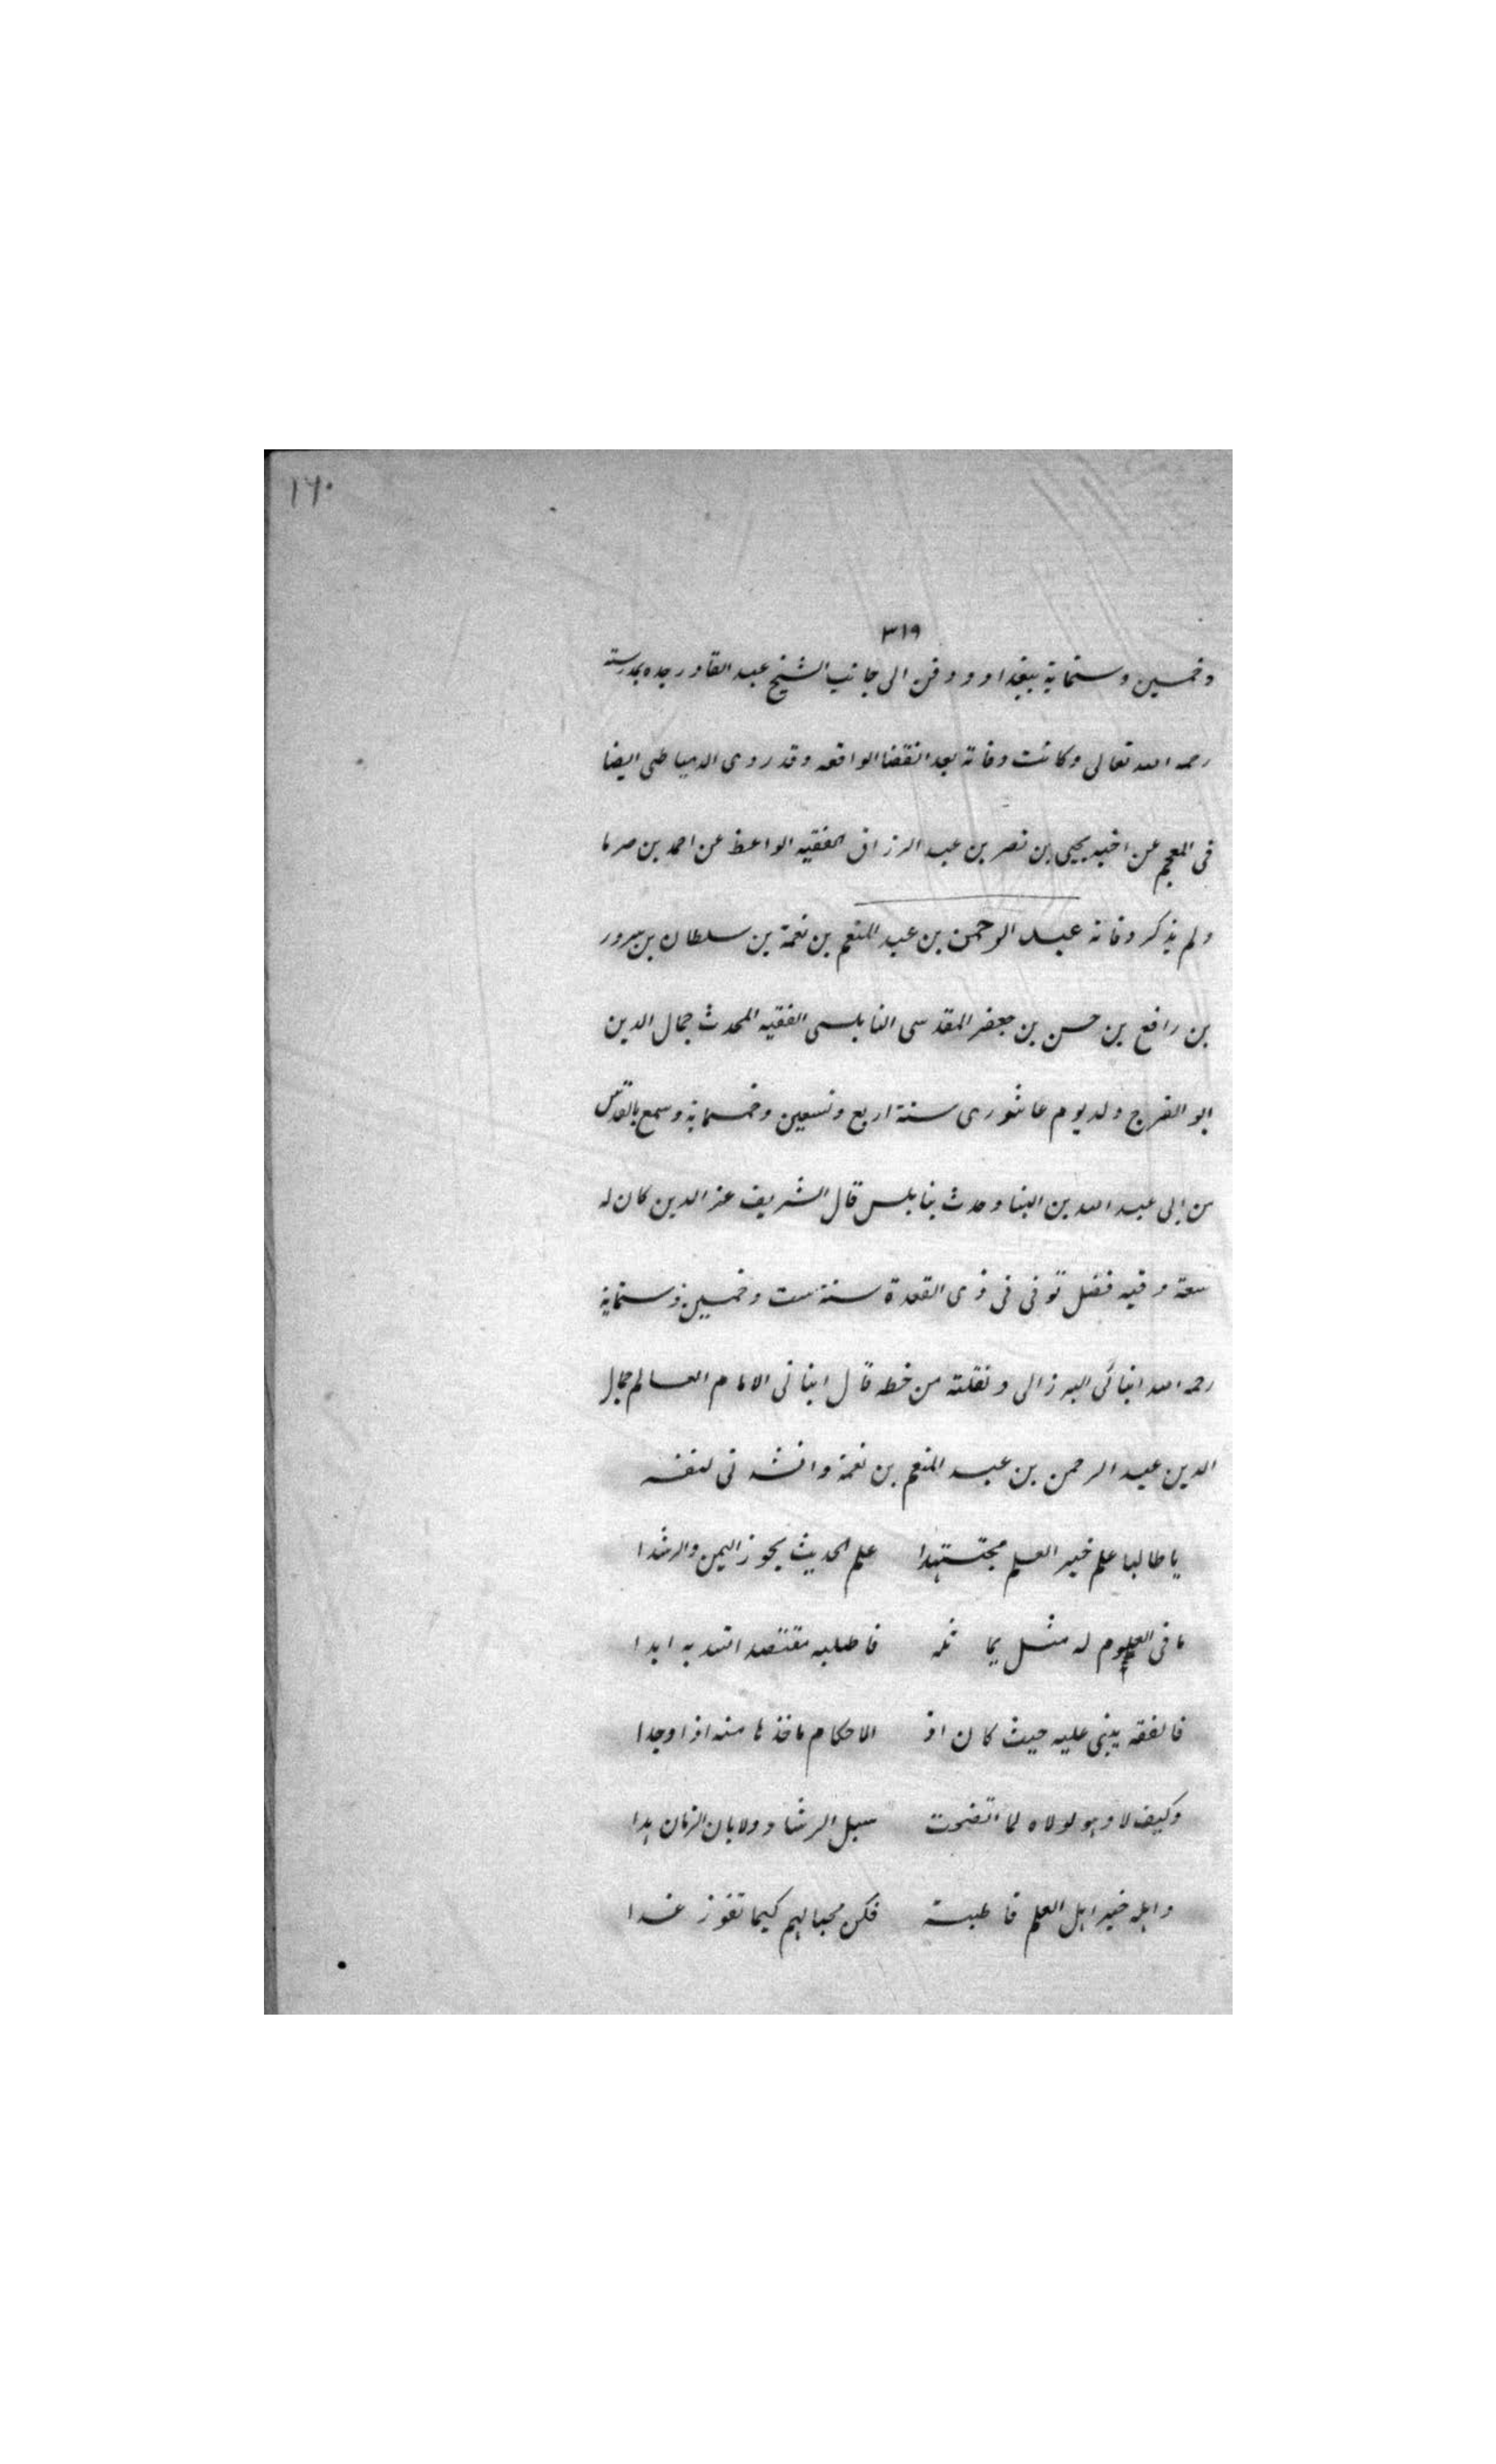 ١٦٠
٣١٩
وخمسين وستماية ببغداد ودفن الى جانب الشيخ عبد القادر جده بمدرسته
رحمه الله تعالى وكانت وفاته بعد انقضا الواقعه وقد روى الدمياطى ايضا
فى المعجم عن اخيه يحيى بن نصر بن عبد الرزاق الفقيه الواعظ عن احمد بن صرما
ولم يذكر وفاته عبد الرحمن بن عبد المنعم بن نعمة بن سلطان بن سرور
بن رافع بن حسن بن جعفر المقدسى النابلسى الفقيه المحدث جمال الدين
ابو الفرج ولد يوم عاشورى سنة اربع وتسعين وخمسماية وسمع بالقدس
من ابى عبد الله بن البنا وحدث بنابلس قال الشريف عز الدين كان له
سعة وفيه فضل توفى فى ذى القعدة سنة ست وخمسين وستماية
رحمه الله انبائى البرزالى ونقلته من خطه قال انبانى الامام العالم جمال
الدين عبد الرحمن بن عبد المنعم بن نعمة وانشدنى لنفسه
يا طالبا علم خير العلم مجتهدا علم الحديث يحوز اليمن والرشدا
ما فى العلوم له مثل يماثله فاطلبه مقتصدا اتتد به ابدا
فالفقه يبنى عليه حيث كان اذ الاحكام ماخذها منه اذا وجدا
وكيف لا وهو لولاه لما اتضحت سبل الرشاد ولا بان الزمان هدا
واهله خير اهل العلم قاطبة فكن محبا لهم كيما تفوز غدا